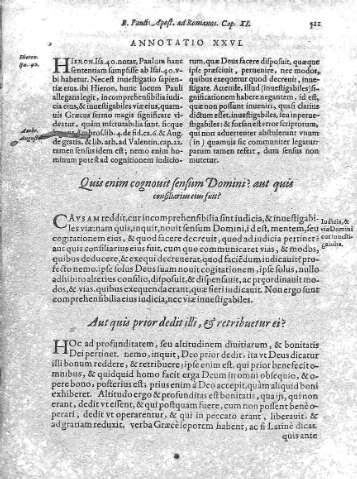 B. Pauli Apost. ad Romanos. Cap. XI.
521
ANNOTATIO XXVI.
Hieron.
Isa. 40.
HIERON. Isa. 40. notat, Paulum hanc
sententiam sumpsisse ab Isai. 40. vbi
habetur. Nescit
etias eius. ibi Hieron. hunc locum Pauli
allegans legit, incomprehensibilia iudi-
cia eius, & inuestigabiles viæ eius, quam-
uis Græcus sermo magis significare vi-
deatur, quàm
lib. 4. de fid. ca. 6. & Aug.
de gratia, & lib. arb. ad Valentin. cap. 22.
ramen sensus idem est; nemo enim ho-
minum potest ad cognitionem iudicio-
Amb.
August.
rum, quæ Deus facere disposuit, quæque
ipse præsciuit, peruenire, nec modos,
quibus exequetur quod decreuit, inue-
stigare. Attende, illud (inuestigabiles) si-
gnificationem habere negantem, id est,
quæ non possunt inueniri, quasi dicens
esset
stigabiles: & forsan est error scriptorum,
qui non aduertenter abstulerunt vnam
(in) quamuis sic communiter legant
tamen refert, dum sensus non
mutetur.
Quis enim cognouit sensum Domini? aut quis
consiliarius eius fuit?
CAVSAM reddit, cur incomprehensibilia sint iudicia, & inuestigabi-
les viæ: nam quis, inquit, nouit sensum Domini, id est, mentem, seu
cogitationem eius, & quod facere decreuit, quod ad iudicia pertinet:
aut quis consiliarius eius fuit, cum quo communicaret vias, & modos,
quibus deduceret, & exequi decreuerat, quod faciēdum iudicauit: pro-
fecto nemo. ipse solus Deus suam nouit cogitationem, ipse solus, nullo
adhibito alterius consilio, disposuit, & dispensauit, ac præordinauit mo-
dos, & vias, quibus exequenda erant, quæ fieri iudicauit. Non ergo sunt
comprehensibilia eius iudicia, nec viæ inuestigabiles.
Iudicia, &
viæ Domini
cur inuesti-
gabilia.
Aut quis prior dedit illi, & retribuetur ei?
HOC ad profunditatem, seu altitudinem diuitiarum, & bonitatis
Dei pertinet. nemo, inquit, Deo prior dedit. ita vt Deus dicatur
illi bonum reddere, & retribuere: ipse enim est, qui prior benefecit o-
mnibus, & quidquid homo facit erga Deum in omni obsequio, & o-
pere bono, posterius est: prius enim à Deo accepit, quàm aliquid boni
exhiberet. Altitudo ergo & profunditas est bonitatis, quia is, qui non
erant, dedit vt essent, & qui postquam fuere, cum non possent bene o-
perari, dedit vt operarentur, & qui in peccato erant, liberauit, &
ad gratiam reduxit. verba Græcè leporem habent, ac si Latinè dicas.
quis ante